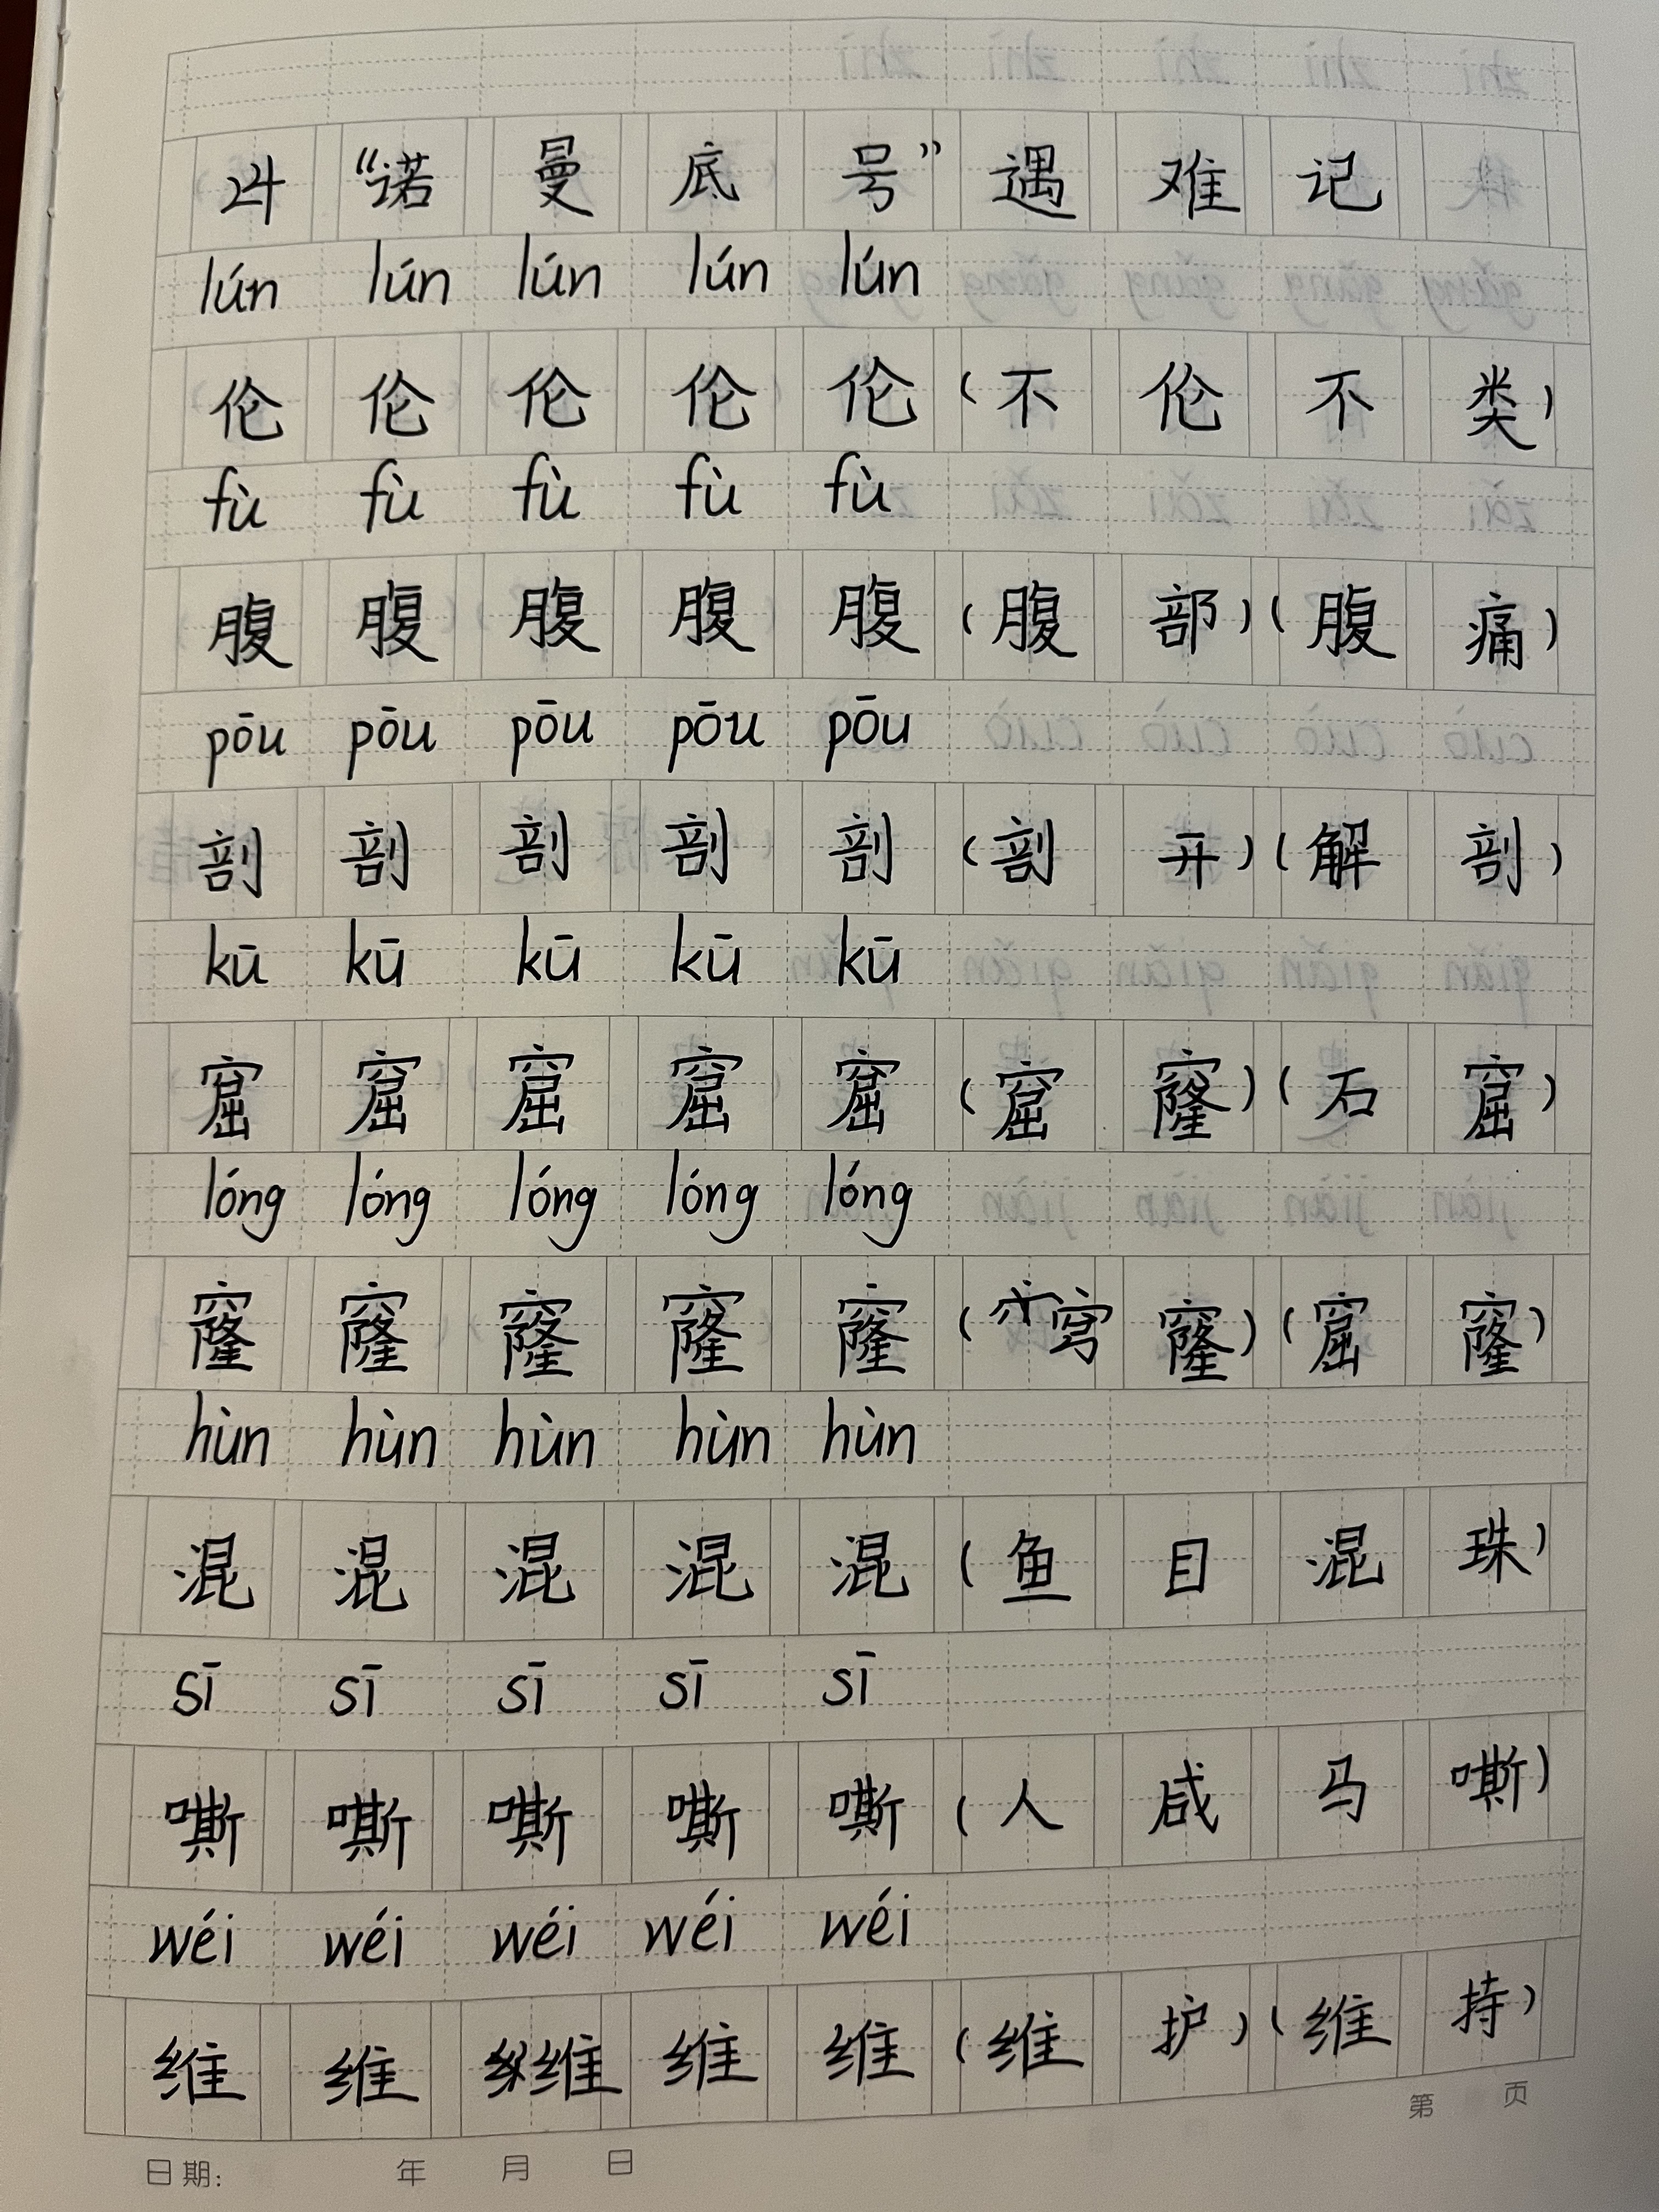 24 “诺曼底号”遇难记
lún lún lún lún lún
伦伦伦伦伦(不伦不类)
fù fù fù fù fù
腹腹腹腹腹(腹部)(腹痛)
pōu pōu pōu pōu pōu
剖剖剖剖剖(剖开)(解剖)
kū kū kū kū kū
窟窟窟窟窟(窟窿)(石窟)
lóng lóng lóng lóng lóng
窿窿窿窿窿(穹窿)(窟窿)
hùn hùn hùn hùn hùn
混混混混混(鱼目混珠)
sī sī sī sī sī
嘶嘶嘶嘶嘶(人咸马嘶)
wéi wéi wéi wéi wéi
维维维维维(维护)(维持)
第 页
日期: 年 月 日